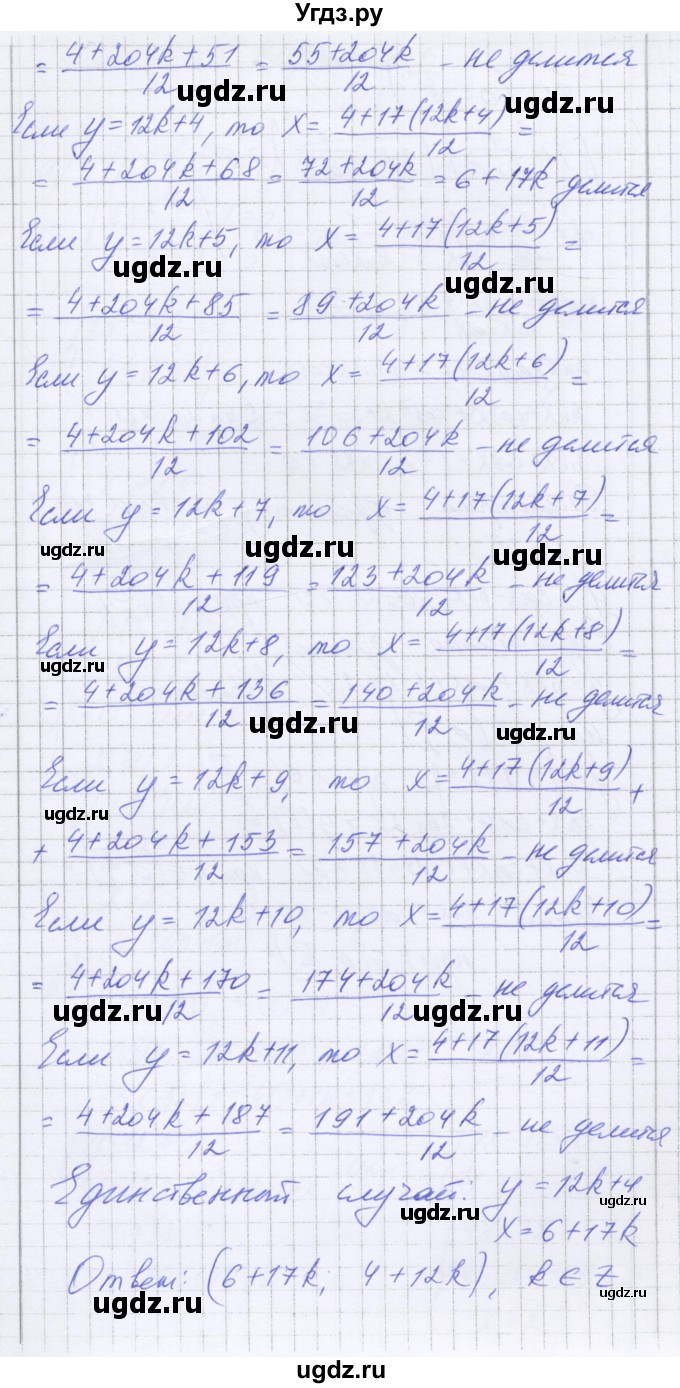 Угдз.ру
= (4+204k+51)/12 = (55+204k)/12 - не делится
ugdz.ru ugdz.ru
Если y=12k+4, то x= (4+17(12k+4))/12 =
ugdz.ru
= (4+204k+68)/12 = (72+204k)/12 = 6+17k делится
ugdz.ru ugdz.ru
Если y=12k+5, то x= (4+17(12k+5))/12 =
ugdz.ru ugdz.ru
= (4+204k+85)/12 = (89+204k)/12 - не делится
Если y=12k+6, то x= (4+17(12k+6))/12 =
ugdz.ru ugdz.ru
= (4+204k+102)/12 = (106+204k)/12 - не делится
Если y=12k+7, то x= (4+17(12k+7))/12 =
ugdz.ru ugdz.ru ugdz.ru
= (4+204k+119)/12 = (123+204k)/12 - не делится
Если y=12k+8, то x= (4+17(12k+8))/12 =
ugdz.ru ugdz.ru
= (4+204k+136)/12 = (140+204k)/12 - не делится
ugdz.ru ugdz.ru
Если y=12k+9, то x= (4+17(12k+9))/12 +
ugdz.ru
+ (4+204k+153)/12 = (157+204k)/12 - не делится
ugdz.ru
Если y=12k+10, то x= (4+17(12k+10))/12 =
ugdz.ru
= (4+204k+170)/12 = (174+204k)/12 - не делится
ugdz.ru ugdz.ru
Если y=12k+11, то x= (4+17(12k+11))/12 =
ugdz.ru ugdz.ru
= (4+204k+187)/12 = (191+204k)/12 - не делится
Единственный случай: y=12k+4
ugdz.ru ugdz.ru
x=6+17k
Ответ: (6+17k; 4+12k), k∈Z
ugdz.ru ugdz.ru ugdz.ru
ugdz.ru